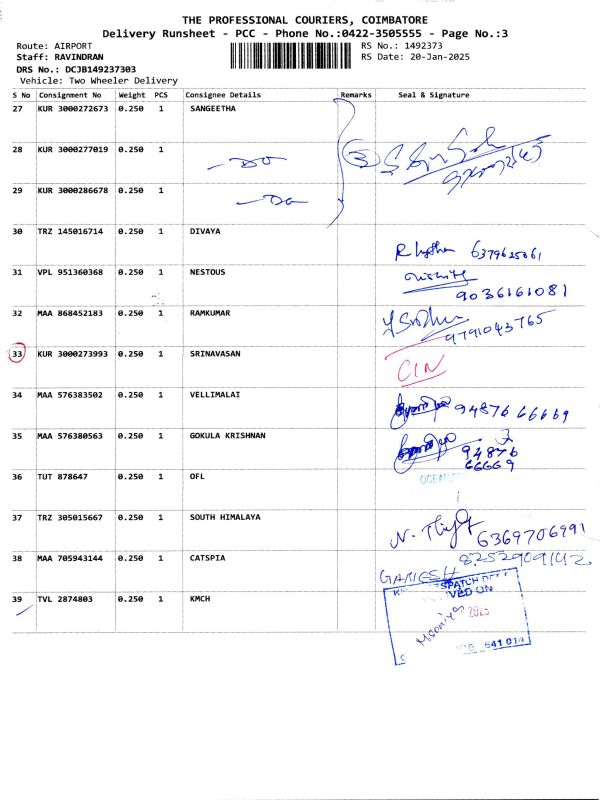 THE PROFESSIONAL COURIERS, COIMBATORE
Delivery Runsheet - PCC - Phone No.:0422-3505555 - Page No.:3
Route: AIRPORT RS No.: 1492373
Staff: RAVINDRAN RS Date: 20-Jan-2025
DRS No.: DCJB149237303
Vehicle: Two Wheeler Delivery
S No Consignment No Weight PCS Consignee Details Remarks Seal & Signature
27 KUR 3000272673 0.250 1 SANGEETHA
28 KUR 3000277019 0.250 1 -Do
3
29 KUR 3000286678 0.250 1 -Do
30 TRZ 145016714 0.250 1 DIVAYA
6379625061
31 VPL 951360368 0.250 1 NESTOUS
9036161081
32 MAA 868452183 0.250 1 RAMKUMAR
9791043765
33 KUR 3000273993 0.250 1 SRINAVASAN
CIN
34 MAA 576383502 0.250 1 VELLIMALAI
9487666669
35 MAA 576380563 0.250 1 GOKULA KRISHNAN
94876
66669
36 TUT 878647 0.250 1 OFL
OCEAN
37 TRZ 305015667 0.250 1 SOUTH HIMALAYA
6369706991
38 MAA 705943144 0.250 1 CATSPIA
8252909142
GANESH
39 TVL 2874803 0.250 1 KMCH
2025
641 014